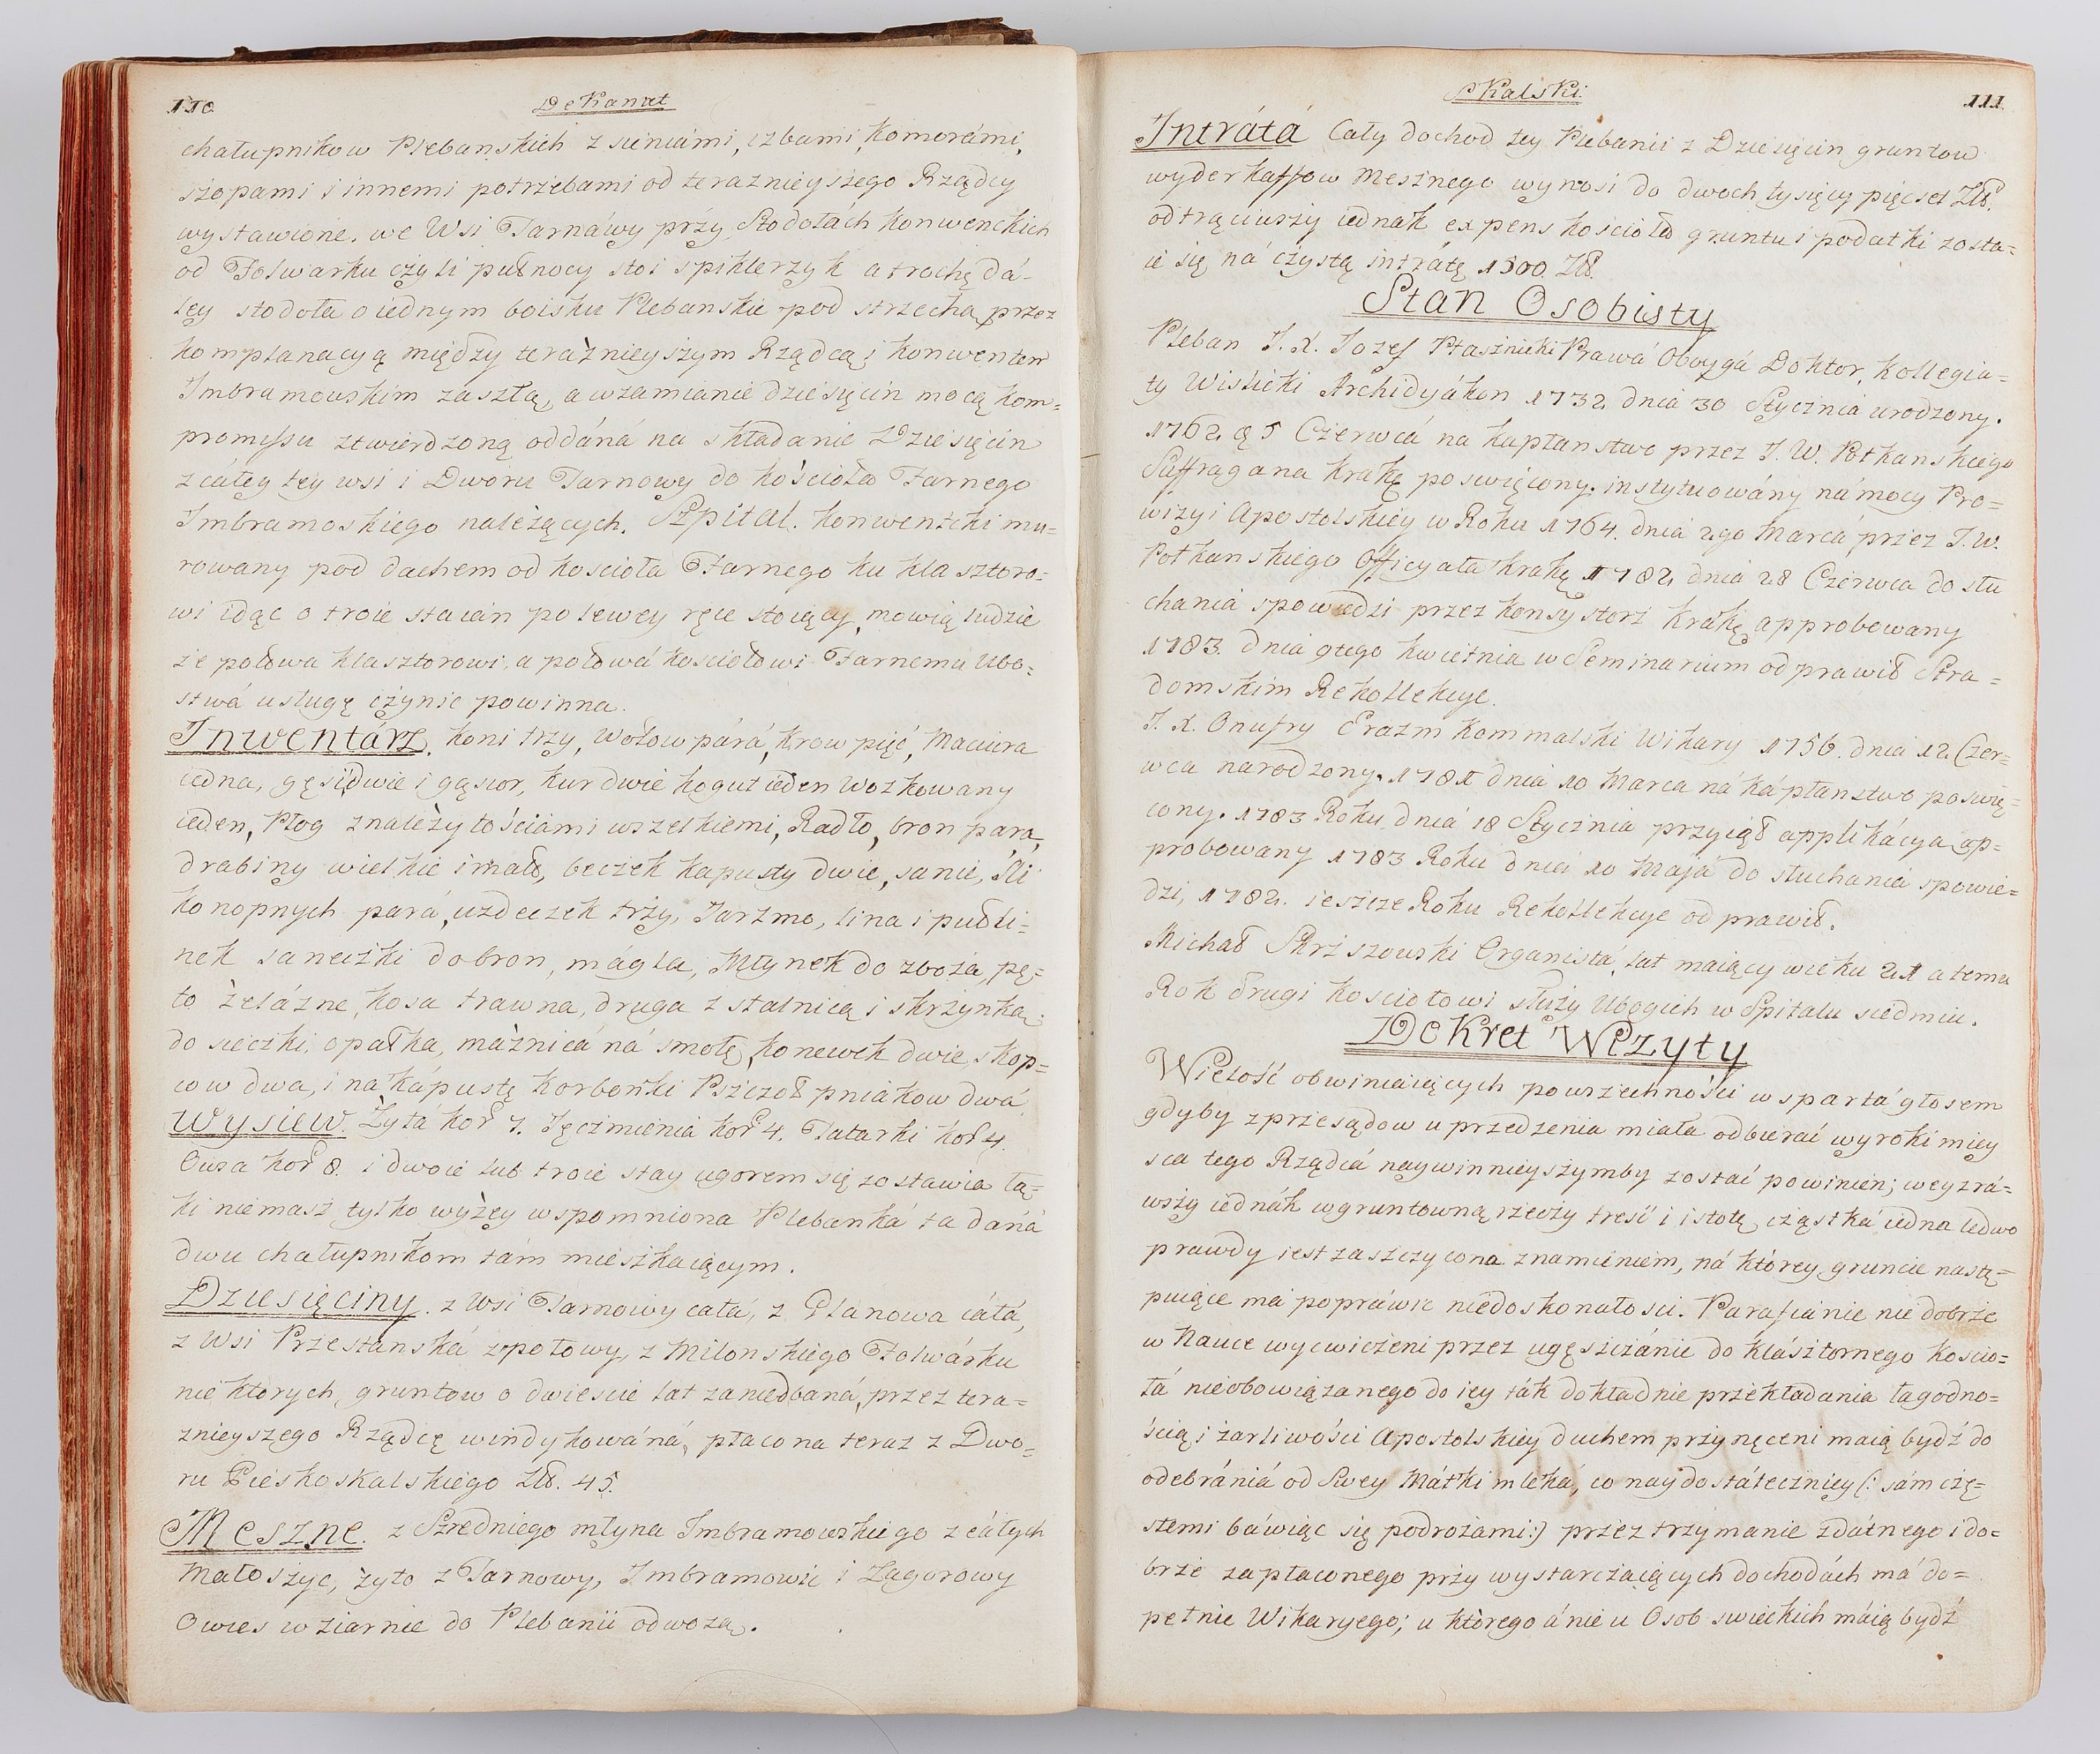 110.
Dekanat
chałupnikow Plebanskich z sieniámi, izbami, komorámi,
szopami i innemi potrzebami od teraznieyszego Rządcy
wystawione. we Wsi Tarnáwy przy Stodołách konwenckich
od Folwarku czyli pułnocy stoi spiklerzyk a trochę dá-
ley stodoła o iednym boisku Plebanskie pod strzechą przez
komplanacyą między teráznieyszym Rządcą i konwentem
Imbramowskim zaszłą, a w zamianie dziesięcin mocą kom=
promissu ztwierdzoną oddáná na składanie Dziesięcin
z cáłey tey wsi i Dworu Tarnowy do kościoła Farnego
Imbramoskiego należących. Szpital. konwentcki mu=
rowany pod dachem od kościoła Farnego ku klasztoro=
wi idąc o troie staian po lewey ręce stoiący, mowią ludzie
że połowa klasztorowi, a połowá kościołowi Farnemu Ubo=
stwá usługę czynic powinna.
Inwentárz. koni trzy, Wołow párá, krow pięć, Maciora
iedna, gęsi dwie i gąsior, kur dwie kogut ieden Woz kowany
ieden, Pług z należytościámi wszelkiemi, Radło, bron para,
drabiny wielkie i małe, beczek kapusty dwie, sanie,
konopnych pará, uzdeczek trzy, Jarzmo, lina i pułli=
nek saneczki do bron, mágla, Młynek do zboża, pę=
to żelázne, kosa trawna, druga z stalnicą i skrzynką
do sieczki. opałka, máznicá ná smołę, konewek dwie, skop=
cow dwa, i na kápustę korbońki Pszczoł pniákow dwá
Wysiew. Żytá kor 7. Jęczmienia kor 4. Tatarki kor 4.
Owsa kor 8. i dwoie lub troie stay ugorem się zostawia łą=
ki niemasz tylko wyżey wspomniona Plebanká ta dáná
dwu chałupnikom tám mieszkaiącym.
Dziesięciny. z Wsi Tarnowy cała, z Glanowa cáłá,
z Wsi Przestanská zpołowy, z Milonskiego Folwárku
niektorych gruntow o dwieście lat zaniedbaná, przez tera=
znieyszego Rządcę windykowáná, płacona teraz z Dwo=
ru Pieskoskalskiego Zł. 45.
Meszne. z Szredniego młyna Imbramowskiego z cáłych
Małoszyc, żyto z Tarnowy, Imbramowic i Zagorowy
Owies w ziarnie do Plebanii odwożą.
Skalski.
111.
Intrátá Cały dochod tey Plebanii z Dziesięcin gruntow
wyderkaffow Mesznego wynosi do dwoch tysięcy pięcset Zł.
odtrąciwszy iednak expens kościołá gruntu i podatki zosta=
ie się ná czystą intrátę 1500. Zł.
Stan Osobisty
Pleban J. X. Jozef Ptasznicki Prawá Oboygá Doktor, Kollegia=
ty Wislicki Archidyákon 1732 dnia 30 Stycznia urodzony.
1762. 5 Czerwcá na kapłanstwo przez J. W. Potkanskiego
Suffragana krakę poswięcony. instytuowány ná mocy Pro=
wizyi Apostolskiey w Roku 1764. dnia 2go Marca przez J. W.
Potkanskiego Officyała krakę 1782 dnia 28 Czerwca do słu
chania spowiedzi przez konsystorz krakę approbowany
1783. dnia 9tego kwietnia w Seminarium odprawił Stra=
domskim Rekollekcye.
J. X. Onufry Erazm kommalski Wikary 1756. dnia 12 Czer=
wca narodzony. 1781 dnia 10 Marca ná kápłanstwo poswię=
cony. 1783 Roku dniá 18 Stycznia przyiął applikácyą ap=
probowany 1783 Roku dnia 10 Majá do słuchania spowie=
dzi, 1782. ieszcze Roku Rekollekcye odprawił.
Michał Skrziszowski Organistá, lat maiący wieku 21 a temu
Rok drugi kościołowi służy Ubogich w Szpitalu siedmiu.
Dekret Wizyty
Wielość obwiniaiących powszechności wspartá głosem
gdyby z przesądow uprzedzenia miała odbierać wyroki miey
sca tego Rządcá naywinnieyszymby zostać powinien; weyzrá=
wszy iednák w gruntowną rzeczy treść i istotę cząstká iedna ledwo
prawdy iest zaszczycona znamieniem, ná którey gruncie nastę=
puiące má popráwic niedoskonałości. Parafianie nie dobrze
w Nauce wycwiczeni przez uczęszczánie do klásztornego kościo=
łá nieobowiązanego do iey ták dokładnie przekładania łagodno=
ścią i żarliwości Apostolskiey duchem przynęceni maią bydź do
odebrániá od Swey Mátki mleká, co naydostáteczniey (: sám czę=
stemi báwiąc się podrożami :) przez trzymanie zdátnego i do=
brze zapłaconego przy wystarczaiących dochodách má do=
pełnic Wikaryego; u ktòrego á nie u Osob swieckich máią bydź